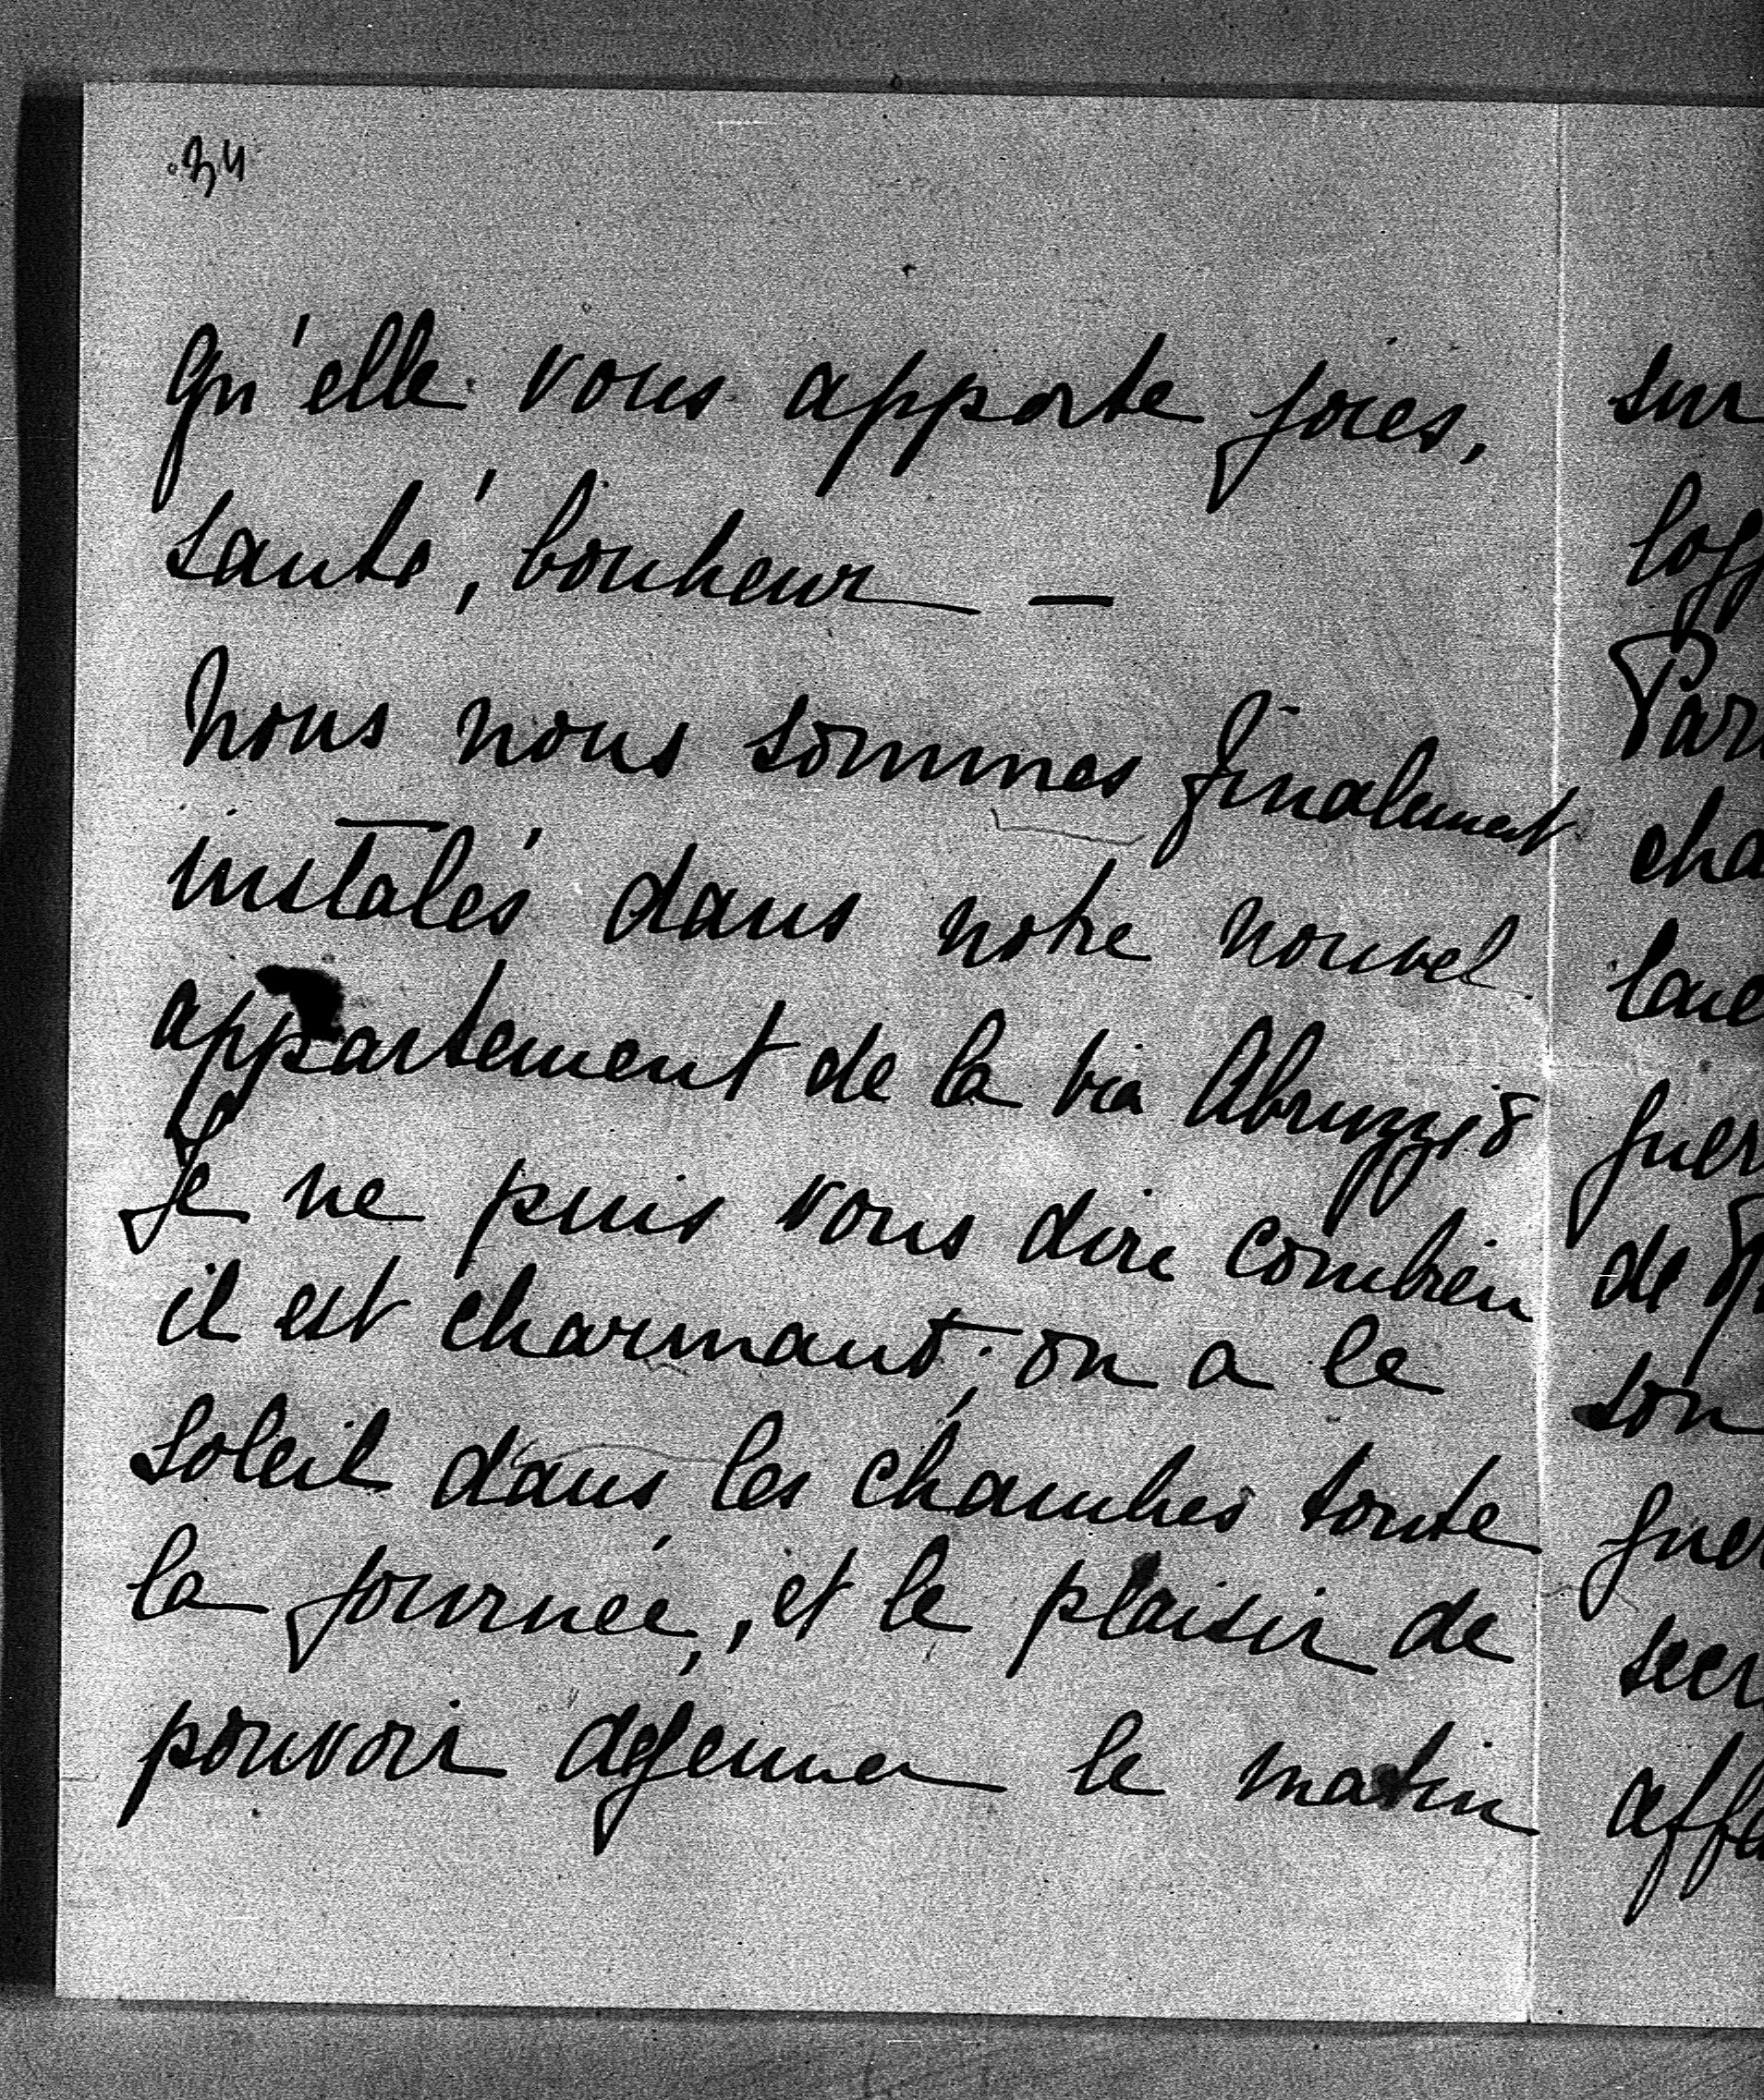 34
qu'elle vous apporte joies,
santé, bonheur —
Nous nous sommes finalement
instalés dans notre nouvel
appartement de la via Abruzzi 8
Je ne puis vous dire combien
il est charmant; on a le
soleil dans les chambres toute
la journée, et le plaisir de
pouvoir déjeuner le matin
sur
de
son